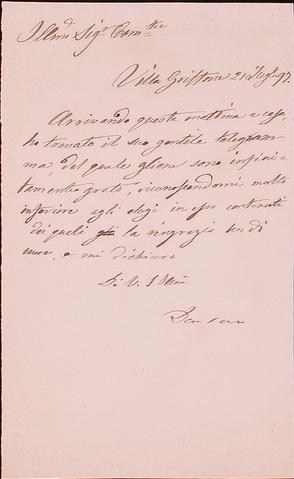 Illmo Sigr Com
Villa 21 Lugl. 97.
Arrivando questa mattina a casa,
ho trovato il suo gentile telegram-
ma, del quale gliene sono infini-
tamente grato, riconoscendomi molto
inferiore agli elogi in esso contenuti
dei quali la ringrazio ben di
cuore, e mi dichiaro
Di V. S Illma